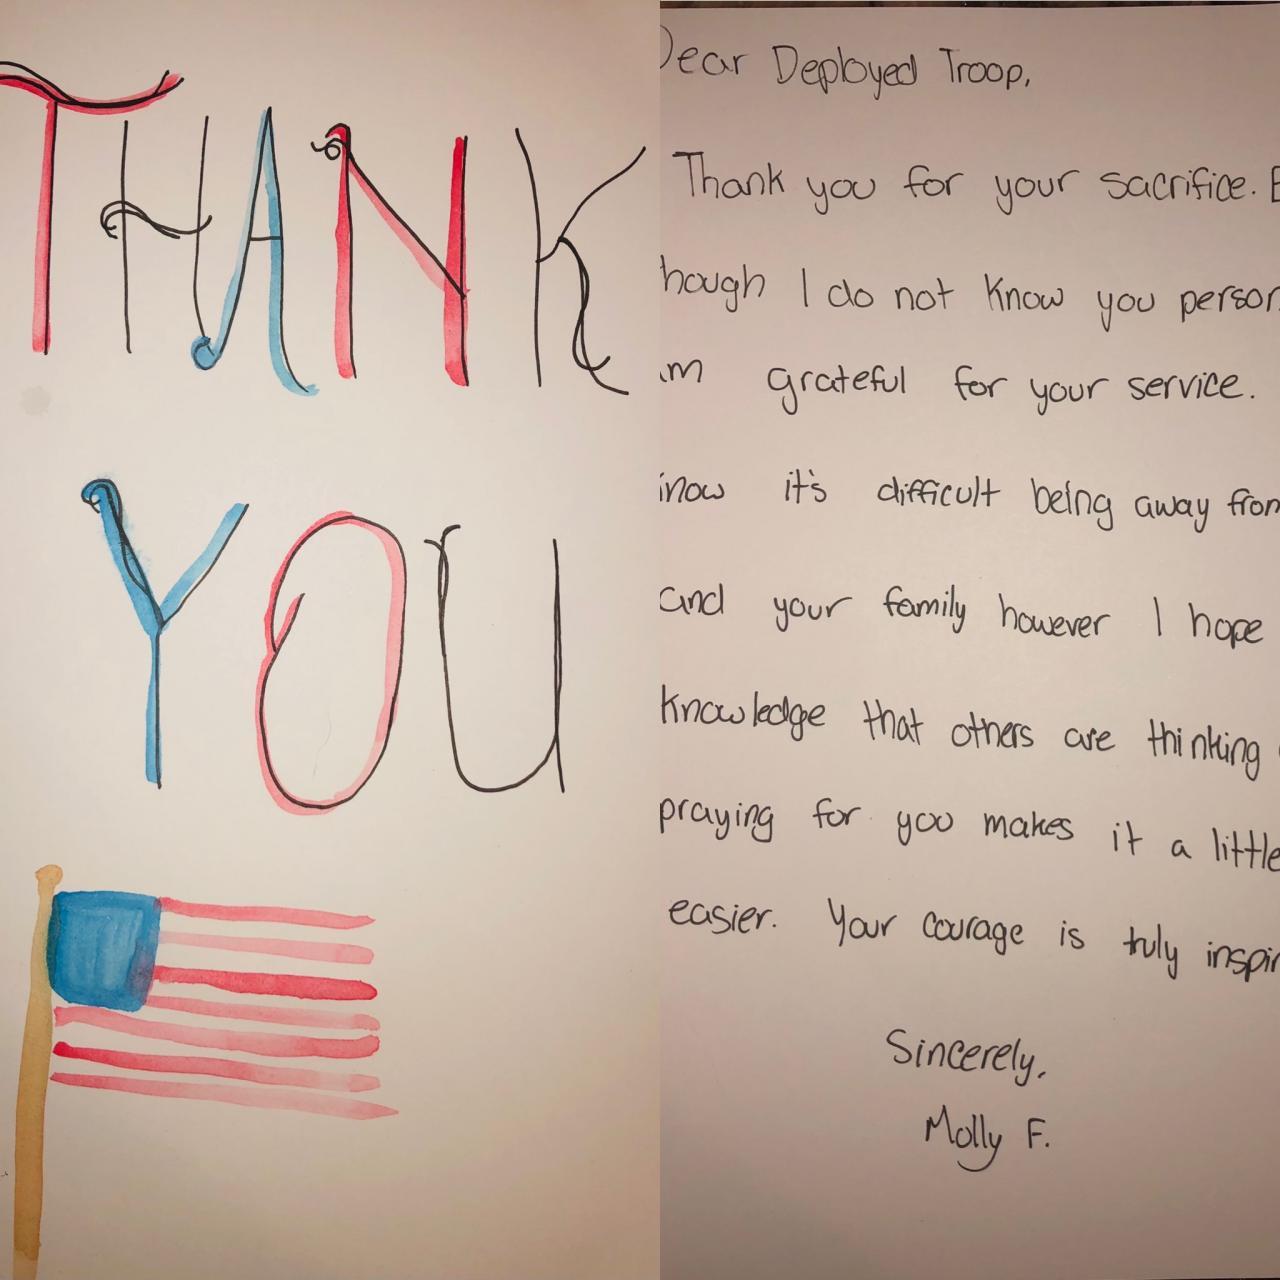 THANK
YOU
Dear Deployed Troop,
Thank you for your sacrifice. E
hough I do not know you person
am grateful for your service.
know it's difficult being away from
and your family however I hope
knowledge that others are thinking
praying for you makes it a little
easier. Your courage is truly inspir
Sincerely,
Molly F.